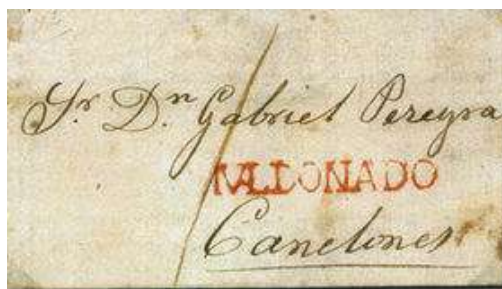 Sr. Dn. Gabriel Pereyra
MALDONADO
Canelones